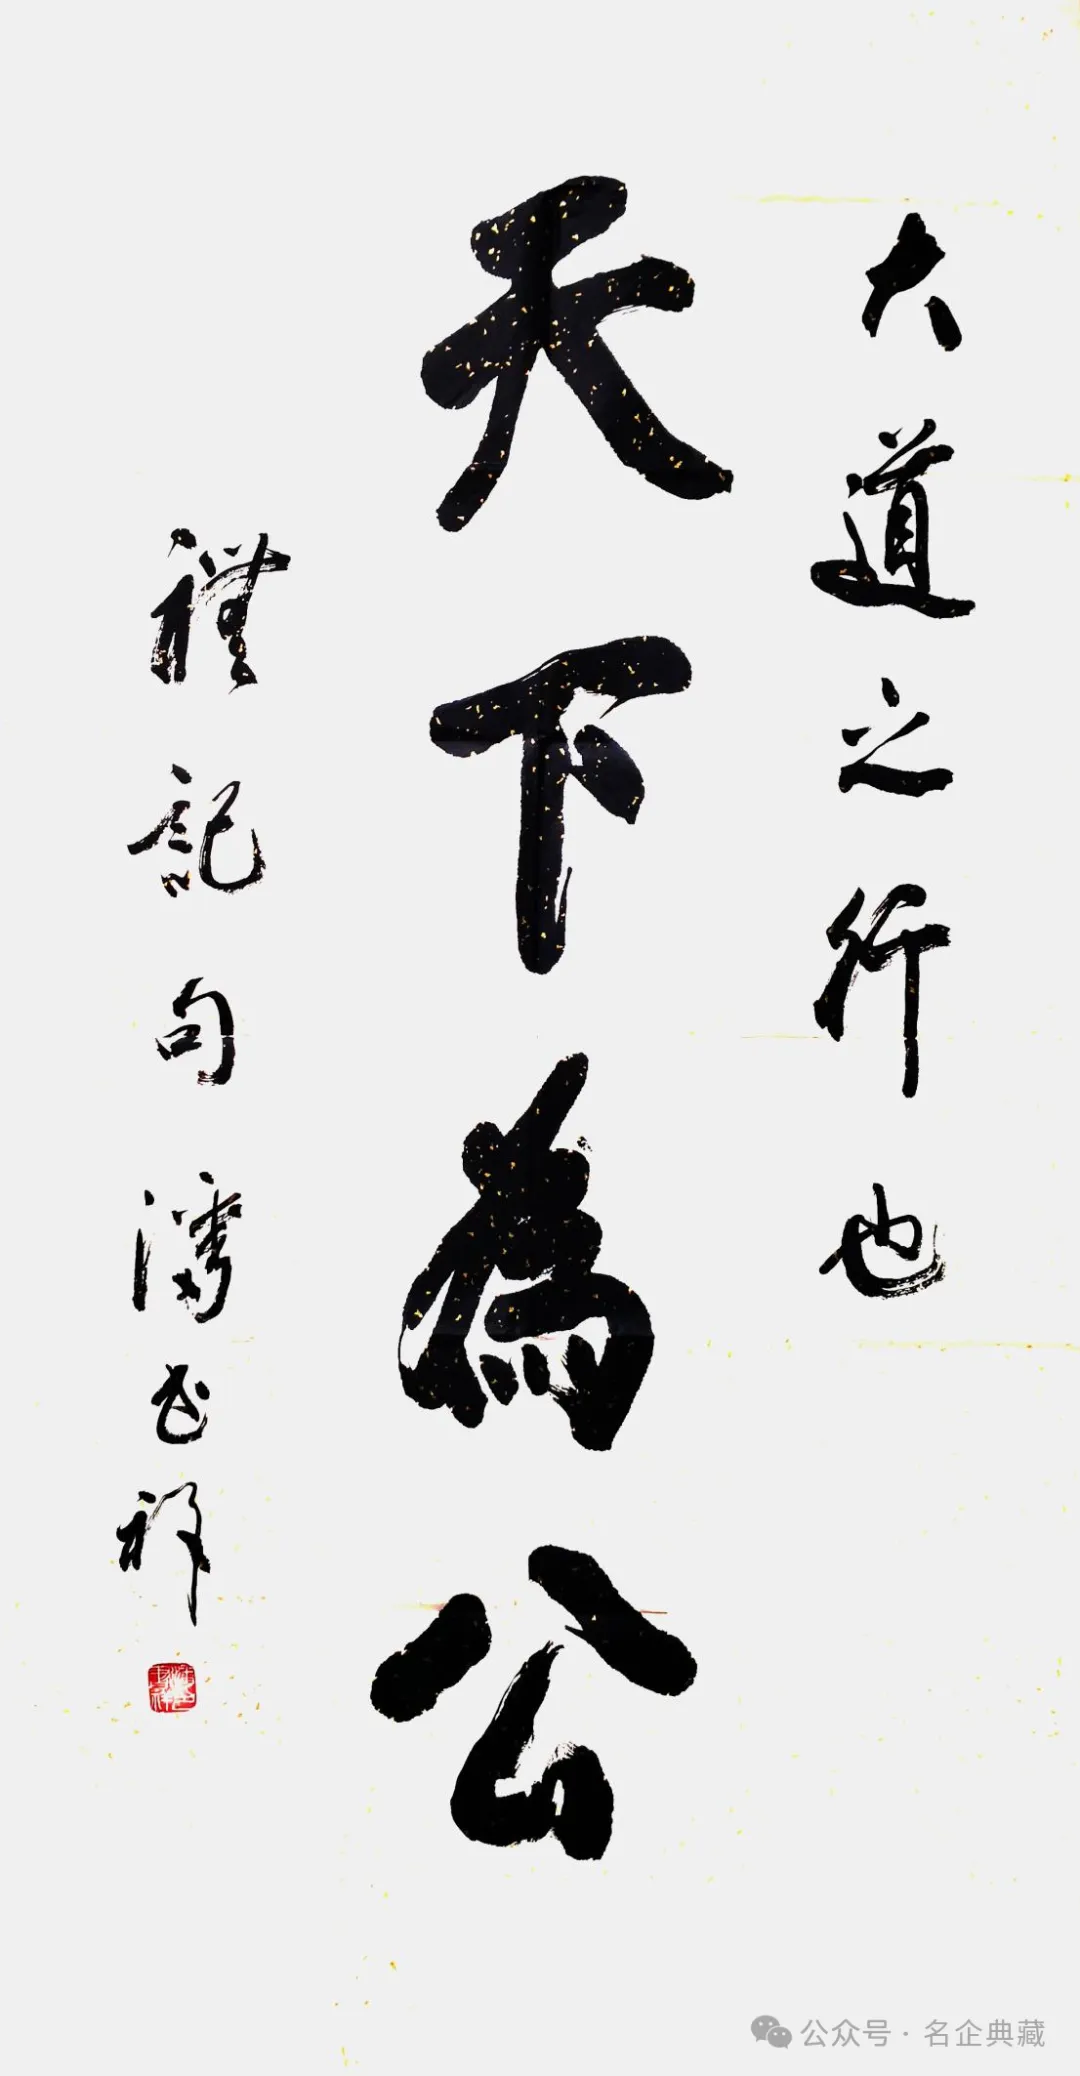 大道之行也
天下為公
禮記句 潘
公众号·名企典藏